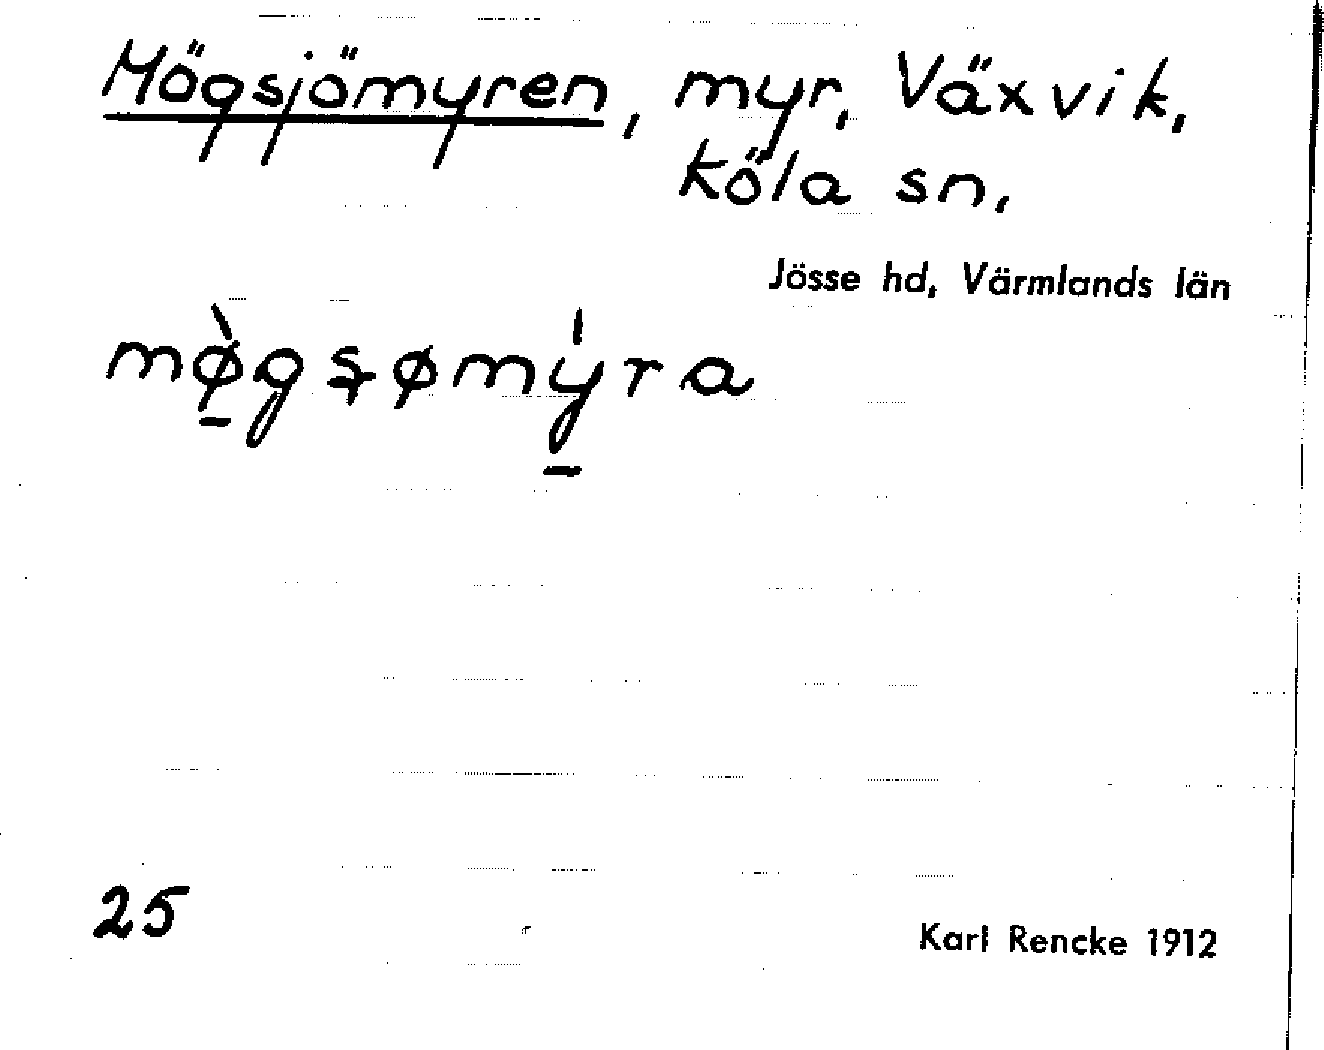 Mögsjömyren, myr, Växvik,
Köla sn,
Jösse hd, Värmlands län
mø̱̀gsɟømý̱ra
25
Karl Rencke 1912